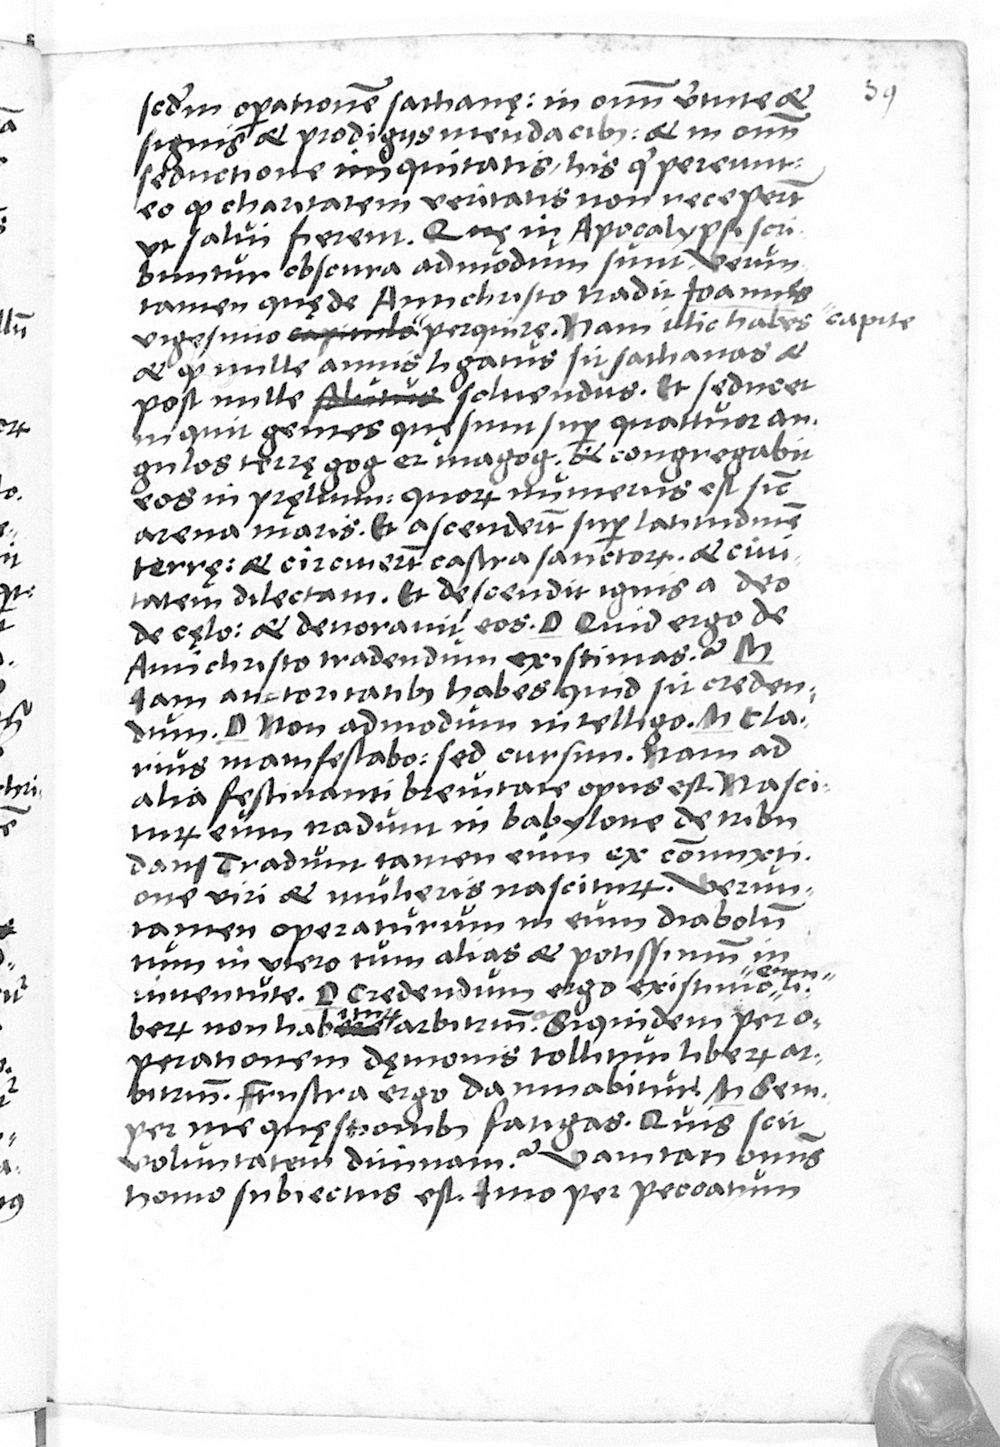 39
scd'm op̱ationē sathanę: in oim̄ v̄tute &
signis & prodigijs mendacib⁊: & in oim̄
seductione iniquitatis, his q' pereunt:
eo ꝙ charitatem veritatis non recepert̄
vt salui fierent. Quę in Apocalypsi scri-
buntur obscura admodum sunt. Verun
tamen quę de Antichristo tradit Joannes
vigesimo capitulo perquire. Nam illic habes capite
& ꝙ mille annis ligatus sit sathanas &
post mille solutus soluendus. Et seducet
inquit gentes quę sunt sup̱ quattuor an-
gulos terrę gog et magog. & congregabit
eos in pręlium: quoꝝ numerus est sic̄
arena maris. Et ascendert̄ sup̱ latitudinē
terrę: & circuiert̄ castra sanctoꝝ. & ciui-
tatem dilectam. Et descendit ignis a deo
de cęlo: & deuorauit eos. D Quid ergo de
Antichristo tradendum existimas? M
Iam auctoritatib⁊ habes quid sit creden-
dum. D Non admodum intelligo. M Cla-
rius manifestabo: sed cursim. Nam ad
alia festinanti breuitate opus est. Nasci-
tuꝝ eum tradunt in babylone de tribu
dan. Tradunt tamen eum ex cōniuxti-
one viri & mulieris nascituꝝ. Verun-
tamen operaturum in eum diabolū
tum in vtero tum alias & potissimū in
iuuentute. D Credendum ergo existimo eum li-
beꝝ non habere ituꝝ arbitriū. Siquidem per o-
perationem dęmonis tollitur libeꝝ ar-
bitriū. Frustra ergo damnabitur. M Sem-
per me quęstionib⁊ fatigas. Quis scit
voluntatem diuinam? Vanitati omīs
homo subiectus est. Imo per peccatum